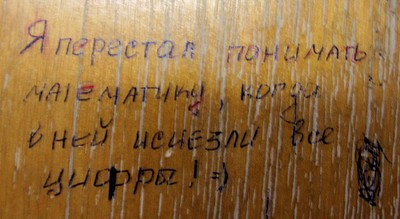 Я перестал понимать
математику, когда
в ней исчезли все
цифры! =)